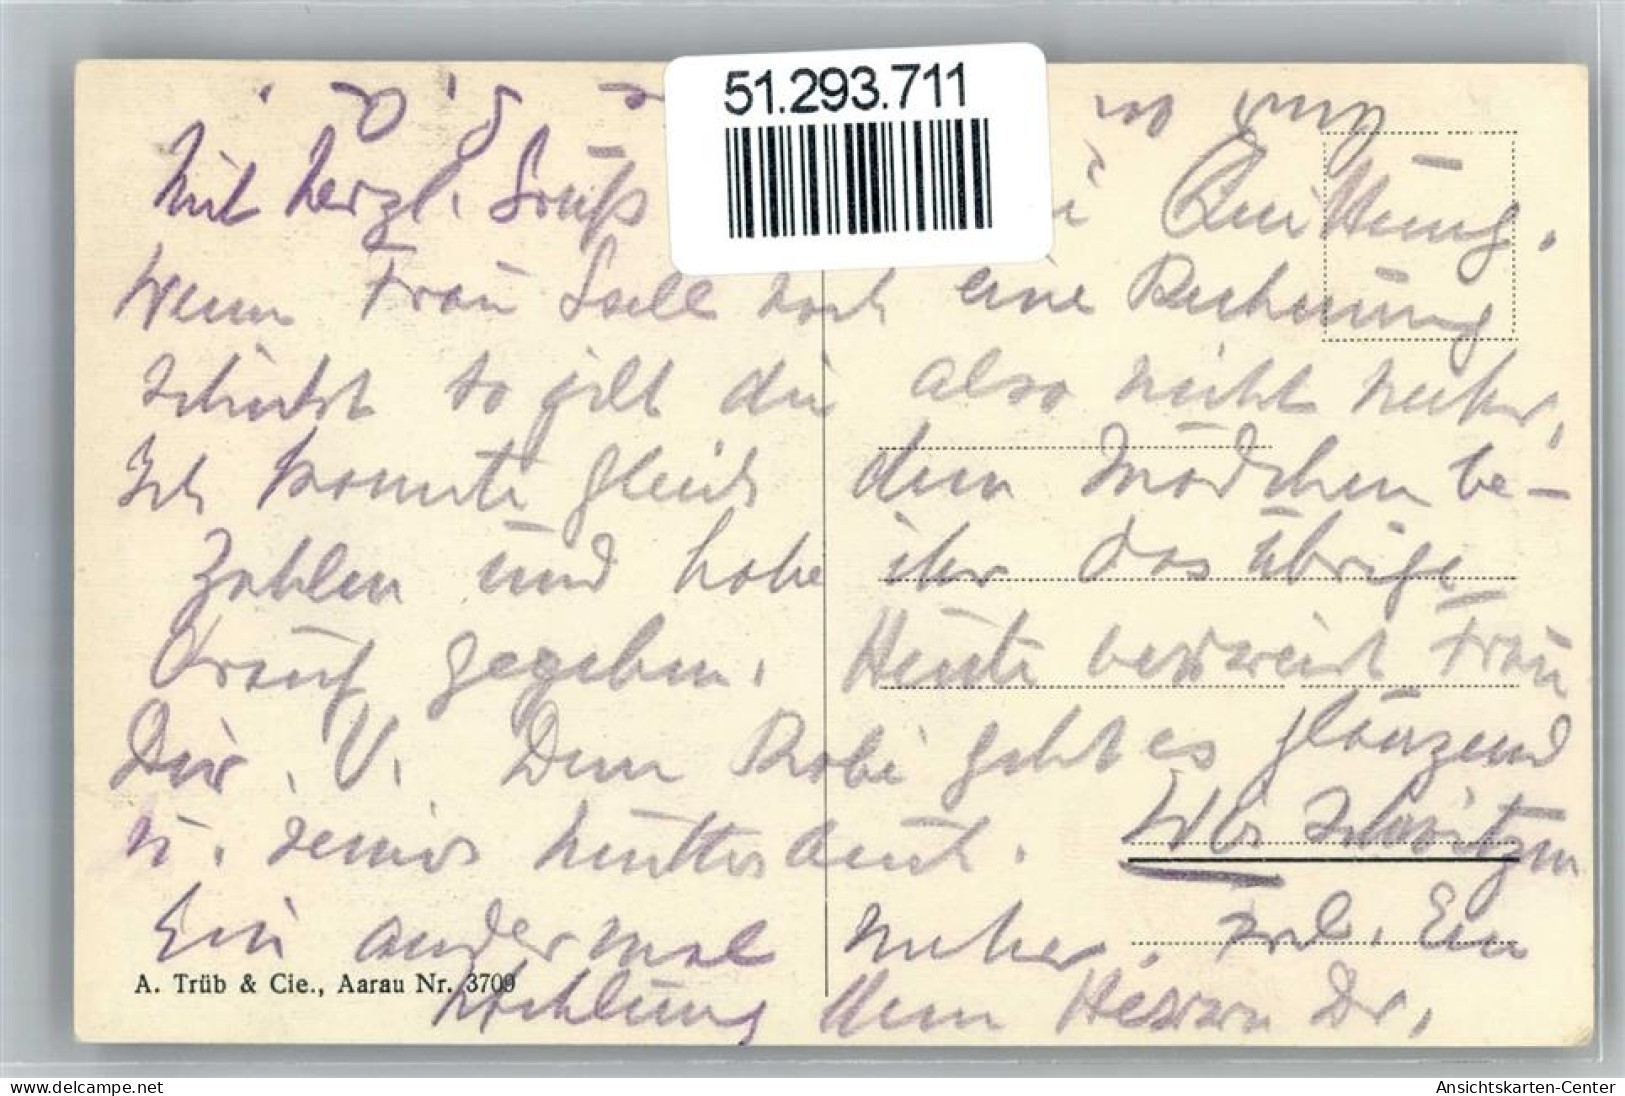 51.293.711
Mit herzl. Gruß Quittung.
Wenn Frau Gsell noch eine Rechnung
schickt so gilt die also nicht mehr,
Ich konnte gleich dem Mädchen be-
zahlen und habe ihr das übrige
drauf gegeben. Heute verreist Frau
Dir. V. Dem Robi geht es glänzend
u. seiner Mutter auch. Wir schwitzen
Ein andermal mehr. Ein
A. Trüb & Cie., Aarau Nr. 3709
dem Herrn Dr.
delcampe.net
Ansichtskarten-Center